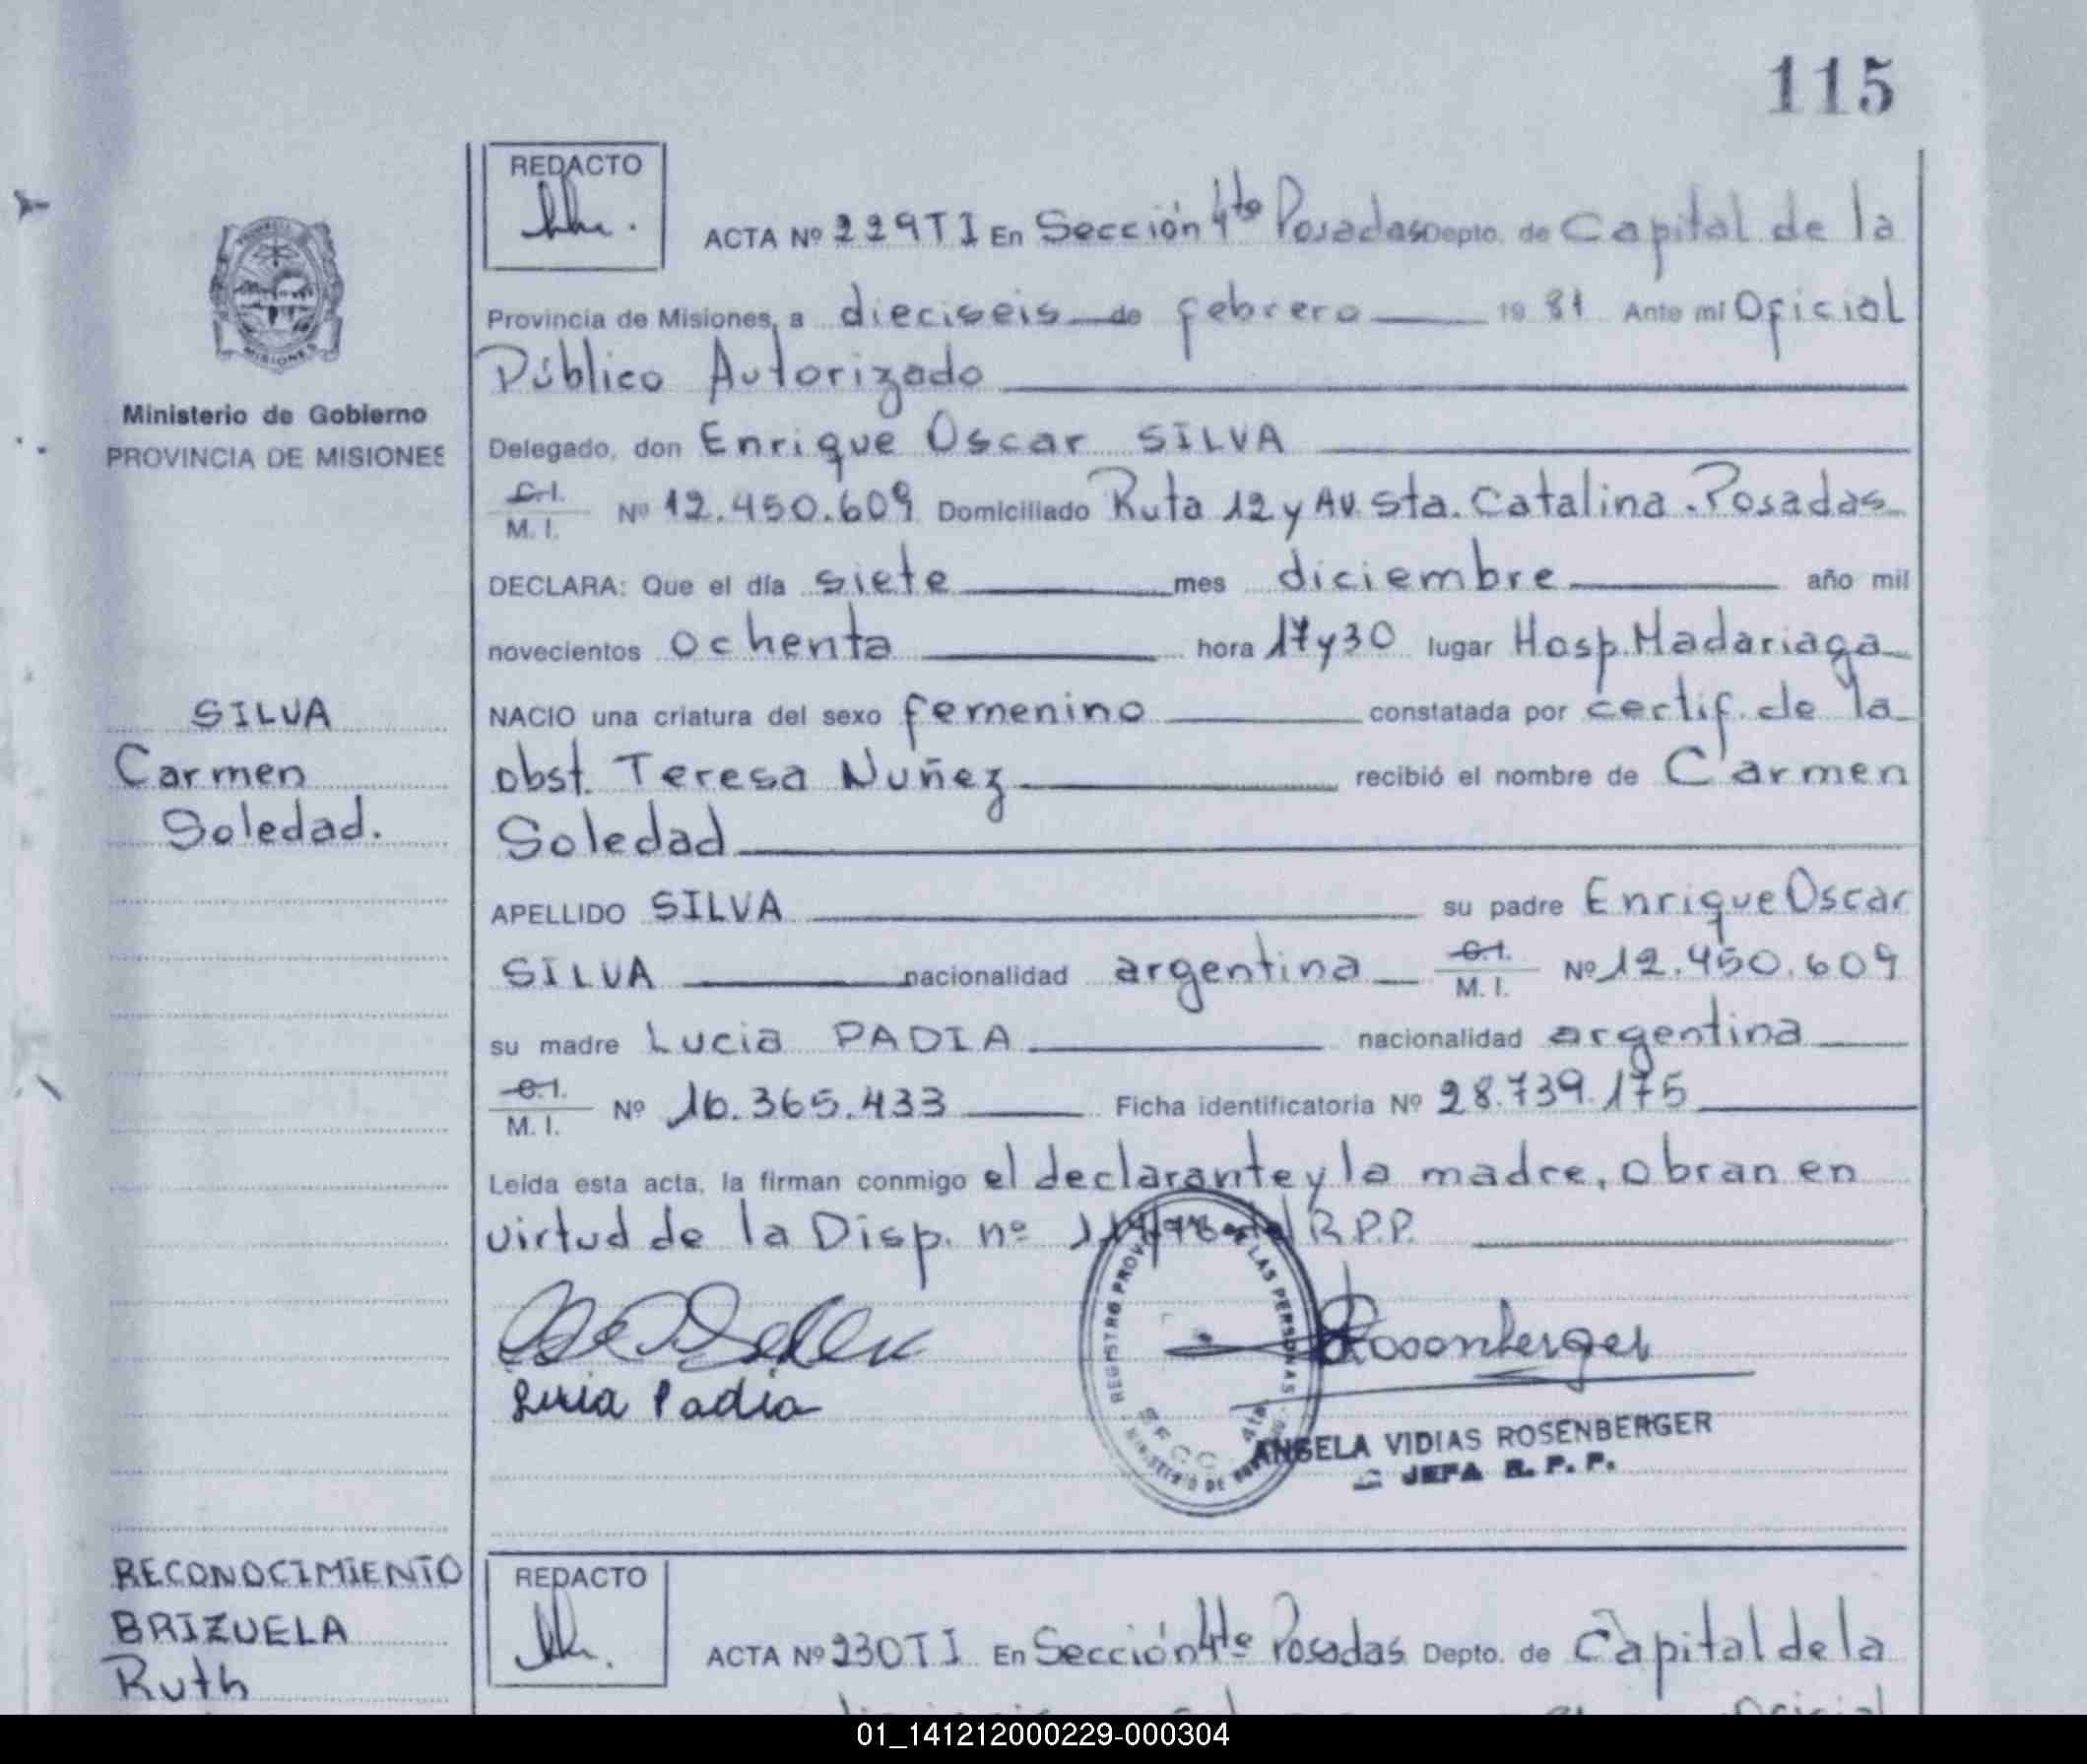 115
REDACTO
ACTA Nº 229 T I En Sección 4ta Posadas Depto. de Capital de la
Provincia de Misiones, a dieciseis de febrero 1981 Ante mi Oficial
Público Autorizado
Ministerio de Gobierno
PROVINCIA DE MISIONES
Delegado, don Enrique Oscar SILVA
C.I.
M. I. Nº 12.450.609 Domiciliado Ruta 12 y Av. Sta. Catalina. Posadas
DECLARA: Que el día siete mes diciembre año mil
novecientos ochenta hora 17 y 30 lugar Hosp. Madariaga
SILVA
Carmen
Soledad.
NACIO una criatura del sexo femenino constatada por certif. de la
obst. Teresa Nuñez recibió el nombre de Carmen
Soledad
APELLIDO SILVA su padre Enrique Oscar
SILVA nacionalidad argentina C.I. M. I. Nº 12.450.609
su madre Lucia PADIA nacionalidad argentina
C.I.
M. I. Nº 16.365.433 Ficha identificatoria Nº 28.739.175
Leída esta acta, la firman conmigo el declarante y la madre, obran en
virtud de la Disp. nº R.P.P.
Lucia Padia
Rosenberger
REGISTRO PROV. DE LAS PERSONAS
MINISTERIO DE
SECC. 4ta
ANGELA VIDIAS ROSENBERGER
JEFA R. P. P.
RECONOCIMIENTO
BRIZUELA
Ruth
REDACTO
ACTA Nº 230 T I En Sección 4ta Posadas Depto. de Capital de la
01_141212000229-000304